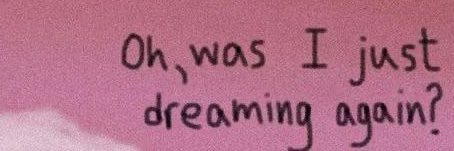 Oh, was I just
dreaming again?